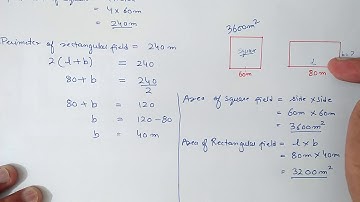 = 4 x 60m
= 240m
Perimeter of rectangular field = 240 m
2(l+b) = 240
80+b = 240/2
80+b = 120
b = 120-80
b = 40m
3600m²
Square
60m
l
b=?
80m
Area of Square field = side x side
= 60m x 60m
= 3600m²
Area of Rectangular field = l x b
= 80m x 40m
= 3200m²